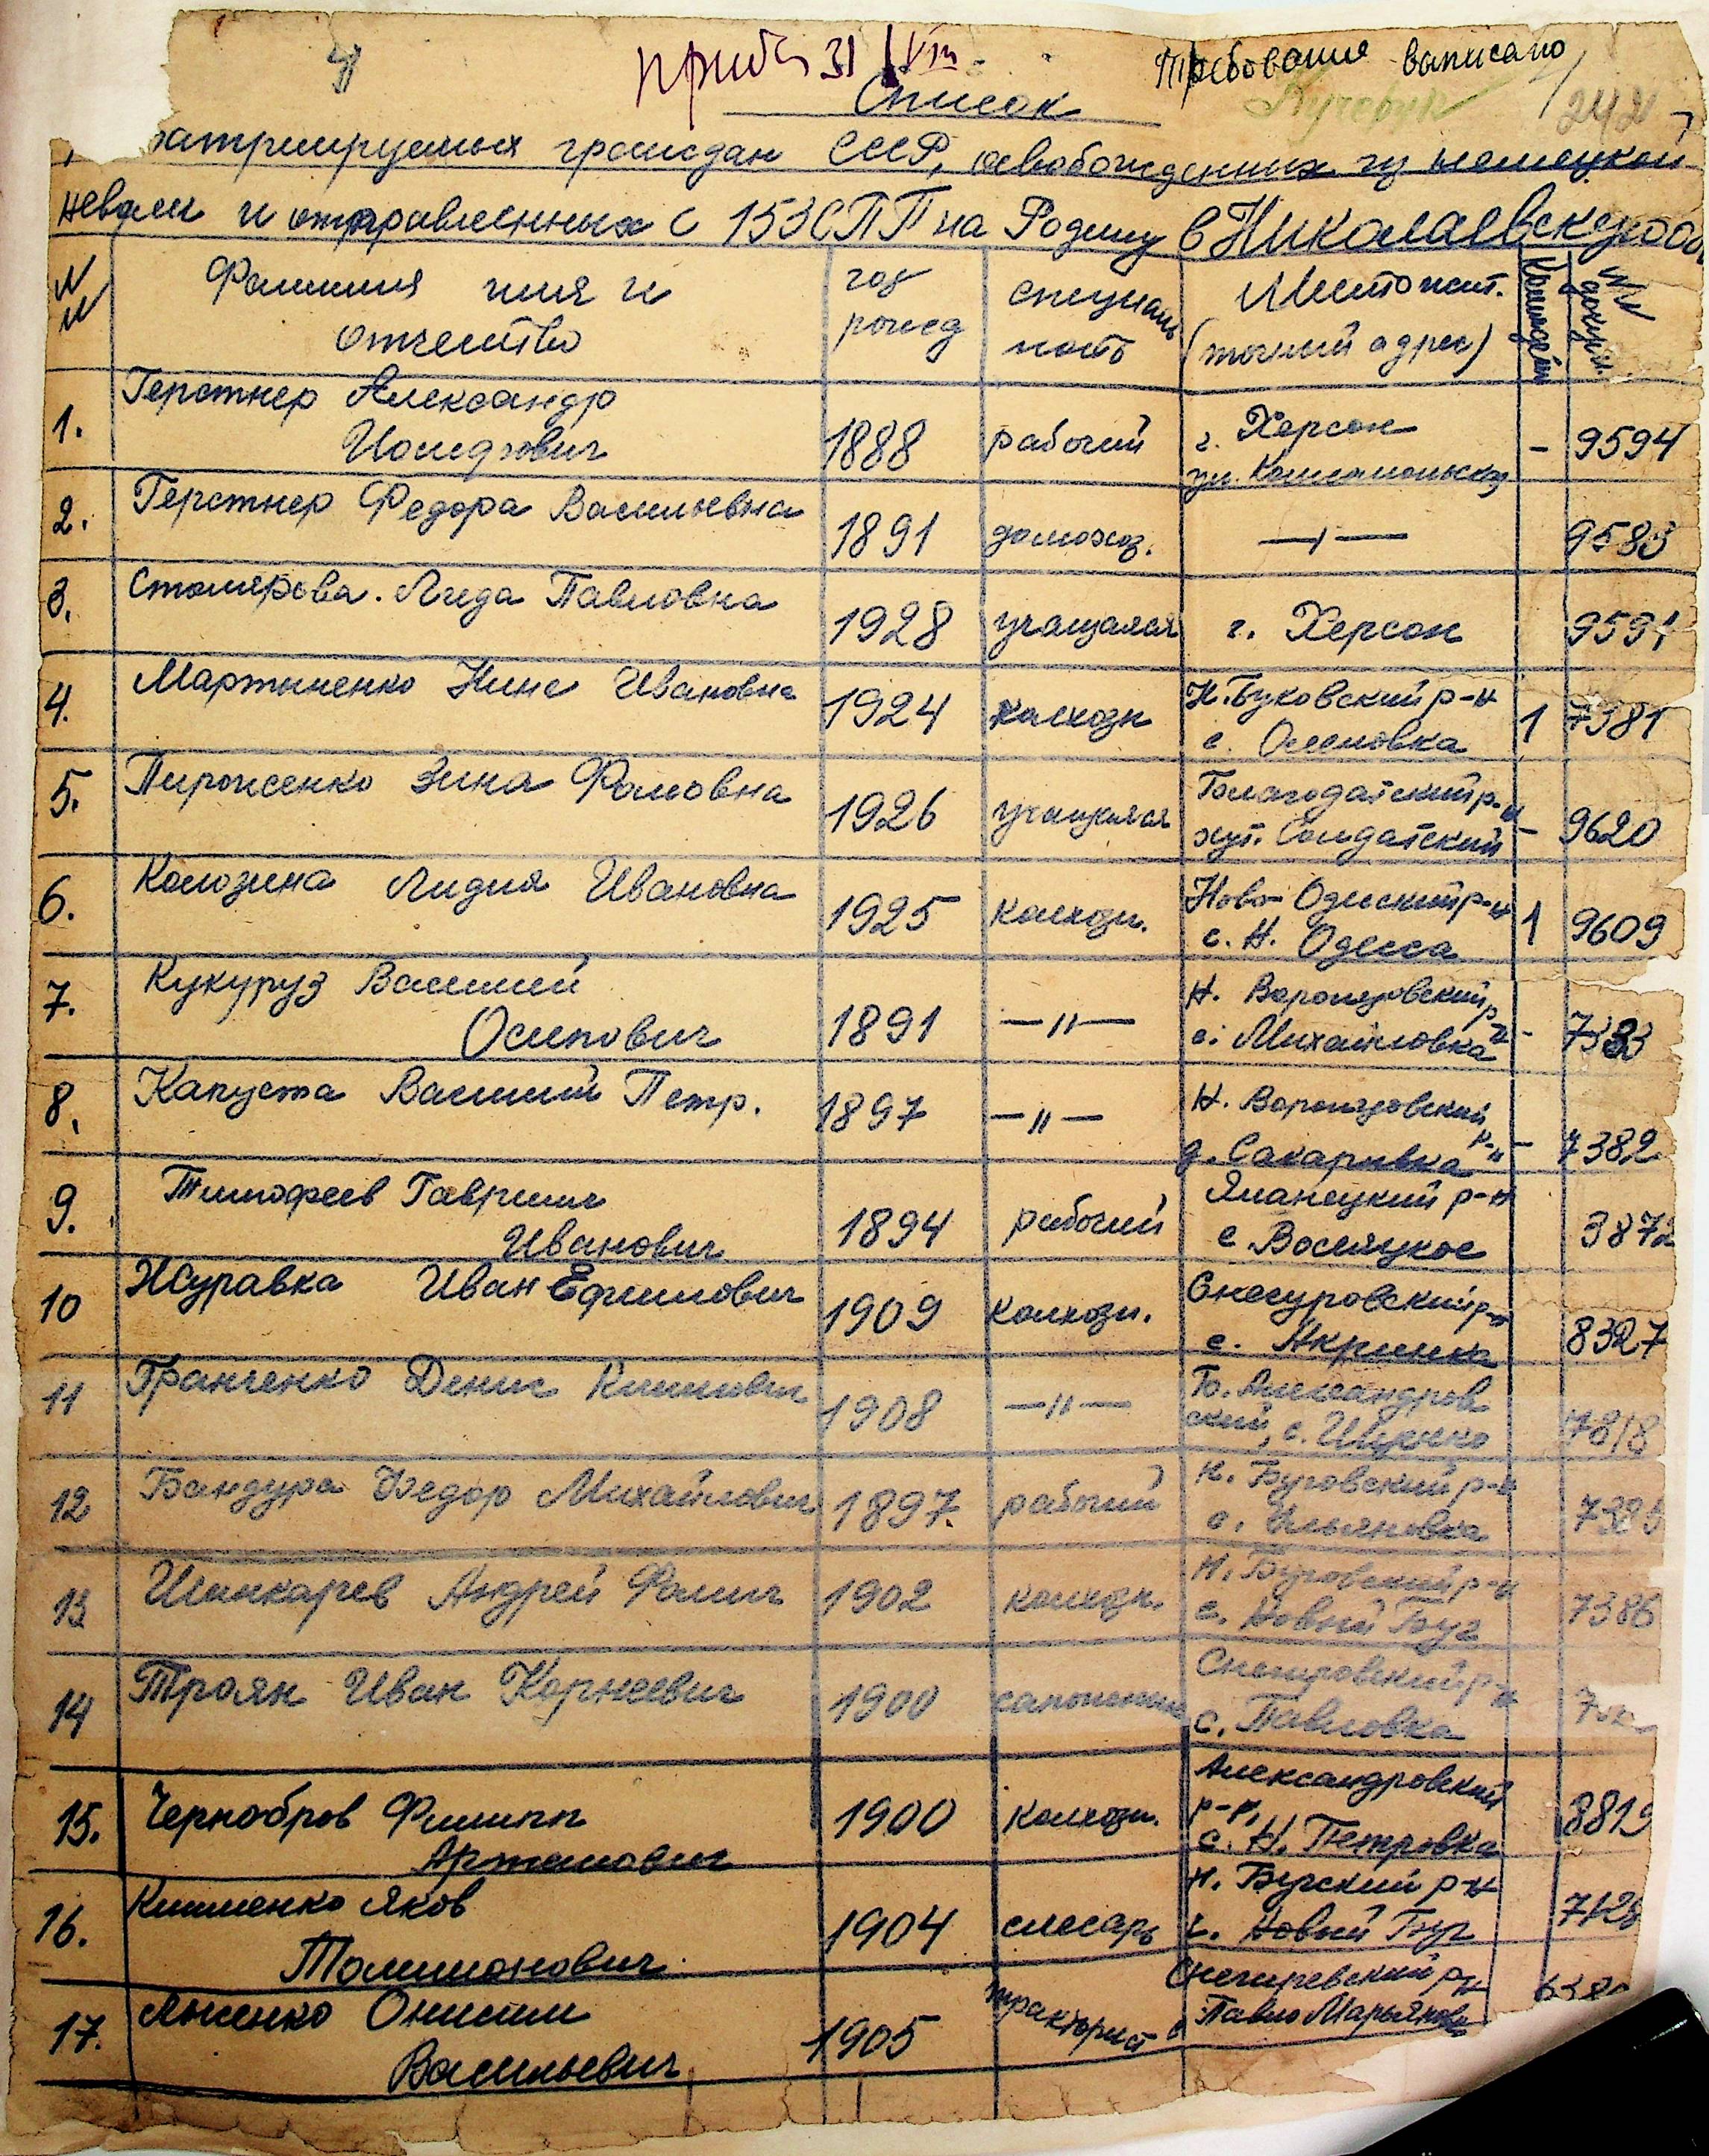 31/VIII
Требования выписано
Список
242
патриируемых граждан СССР, освобожденных из немецкой
неволи и отправленных с 153 СПП на Родину в Николаевскую обл
NN Фамилия имя и отчество год рожд специальность Местожит. (точный адрес) документ.
1. Герстнер Александр Иосифович 1888 рабочий г. Херсон ул. - 9594
2. Герстнер Федора Васильевна 1891 домохоз. —"— 9583
3. Столярова Лида Павловна 1928 учащаяся г. Херсон 9591
4. Мартыненко Нина Ивановна 1924 колхозн Н. Буковский р-н с. Оленовка 1 7381
5. Пироженко Зина Фомовна 1926 учащаяся р-н хут. Солдатский - 9620
6. Колозина Лидия Ивановна 1925 колхозн. Ново-Одесский р-н с. Н. Одесса 1 9609
7. Кукуруз Василий Осипович 1891 —"— Н. Воронцовский р-н с. Михайловка - 7383
8. Капуста Василий Петр. 1897 —"— Н. Воронцовский р-н д. Сакаривка - 7382
9. Тимофеев Гавриил Иванович 1894 рабочий Яланецкий р-н с. Восияцкое 3872
10 Журавка Иван Ефимович 1909 колхозн. Снегуровский р-н с. 8327
11 Гранченко Денис 1908 —"— Б. Александровский, с. 7818
12 Бандура Федор Михайлович 1897 рабочий Н. Буговский р-н с. Ульяновка
13 Шинкарев Андрей Фомич 1902 колхозн. Н. Буговский р-н с. Новый Буг 7386
14 Троян Иван Корнеевич 1900 Снегировский р-н с. Павловка
15. Чернобров Филипп Артамович 1900 колхозн. Александровский р-н, с. Н. Петровка 8819
16. Клименко Яков 1904 слесарь Н. Бугский р-н г. Новый Буг 7128
17. Яценко Онисим Васильевич 1905 тракторист Снегиревский р-н с Павло Марьяновка